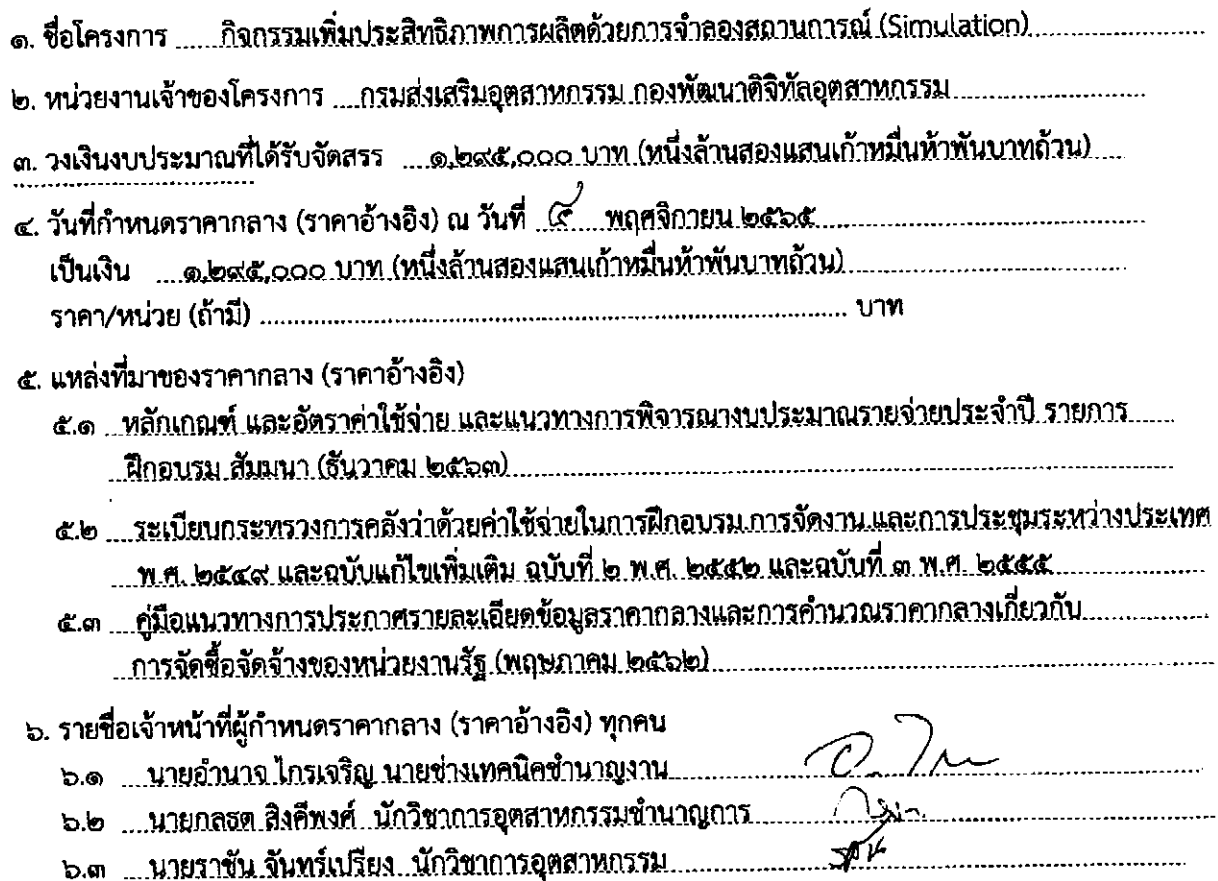 ๑. ชื่อโครงการ ......กิจกรรมเพิ่มประสิทธิภาพการผลิตด้วยการจำลองสถานการณ์ (Simulation)......
๒. หน่วยงานเจ้าของโครงการ ....กรมส่งเสริมอุตสาหกรรม กองพัฒนาดิจิทัลอุตสาหกรรม......
๓. วงเงินงบประมาณที่ได้รับจัดสรร ....๑,๒๙๕,๐๐๐ บาท (หนึ่งล้านสองแสนเก้าหมื่นห้าพันบาทถ้วน)....
๔. วันที่กำหนดราคากลาง (ราคาอ้างอิง) ณ วันที่ ... พฤศจิกายน ๒๕๖๕......
เป็นเงิน ......๑,๒๙๕,๐๐๐ บาท (หนึ่งล้านสองแสนเก้าหมื่นห้าพันบาทถ้วน)......
ราคา/หน่วย (ถ้ามี) ...... บาท
๕. แหล่งที่มาของราคากลาง (ราคาอ้างอิง)
๕.๑ ...หลักเกณฑ์ และอัตราค่าใช้จ่าย และแนวทางการพิจารณางบประมาณรายจ่ายประจำปี รายการ......
ฝึกอบรม สัมมนา (ธันวาคม ๒๕๖๓)......
๕.๒ ....ระเบียบกระทรวงการคลังว่าด้วยค่าใช้จ่ายในการฝึกอบรม การจัดงาน และการประชุมระหว่างประเทศ
พ.ศ. ๒๕๔๙ และฉบับแก้ไขเพิ่มเติม ฉบับที่ ๒ พ.ศ. ๒๕๕๒ และฉบับที่ ๓ พ.ศ. ๒๕๕๕......
๕.๓ ....คู่มือแนวทางการประกาศรายละเอียดข้อมูลราคากลางและการคำนวณราคากลางเกี่ยวกับ......
การจัดซื้อจัดจ้างของหน่วยงานรัฐ (พฤษภาคม ๒๕๖๒)......
๖. รายชื่อเจ้าหน้าที่ผู้กำหนดราคากลาง (ราคาอ้างอิง) ทุกคน
๖.๑ ....นายอำนาจ ไกรเจริญ นายช่างเทคนิคชำนาญงาน......
๖.๒ ....นายกลธต สิงคีพงศ์ นักวิชาการอุตสาหกรรมชำนาญการ......
๖.๓ ....นายราชัน จันทร์เปรียง นักวิชาการอุตสาหกรรม......